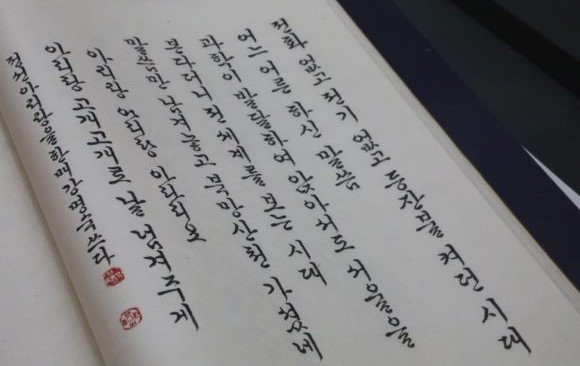 전화 없고 전기 없고 등잔불 켜던 시대
어느 어른 하신 말씀
과학이 발달하여 앉아서도 서울을
본다더니 보는 시대
말씀만 남겨놓고 북망산천 가셨네
아리랑 아리랑 아라리요
아리랑 고개고개로 날 넘겨주게
정선아리랑을 한메 강명숙 쓰다